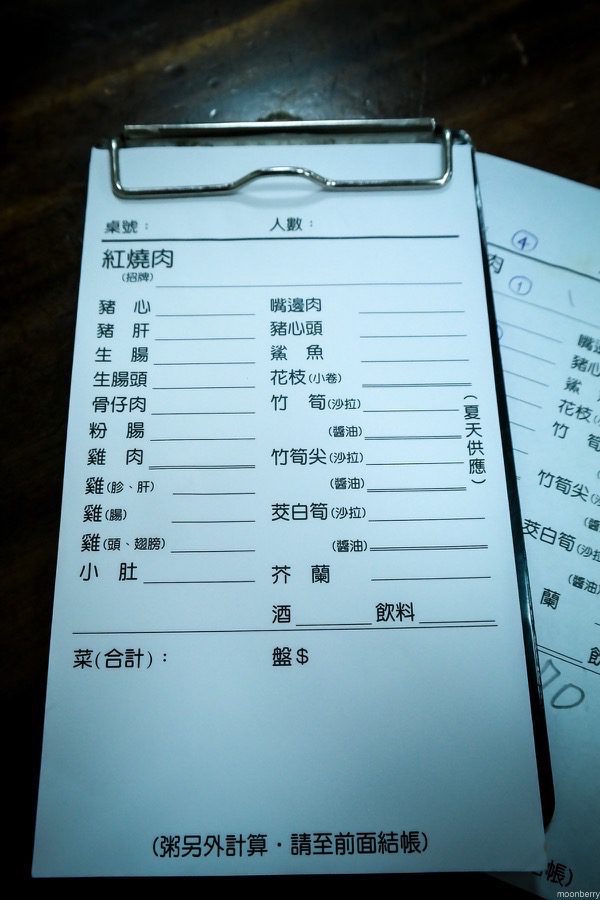 桌號： 人數：
紅燒肉
(招牌)
豬 心 嘴邊肉
豬 肝 豬心頭
生 腸 鯊 魚
生腸頭 花枝(小卷)
骨仔肉 竹 筍(沙拉)
粉 腸 (醬油)
雞 肉 竹筍尖(沙拉)
雞(胗、肝) (醬油)
雞(腸) 茭白筍(沙拉)
雞(頭、翅膀) (醬油)
小 肚 芥 蘭
(夏天供應)
酒 飲料
菜(合計)： 盤$
(粥另外計算·請至前面結帳)
④
肉
①
嘴邊
豬心
鯊
花枝(小
竹 筍
竹筍尖(沙
(醬
茭白筍(沙拉
(醬油
蘭
飲
70
帳)
moonberry